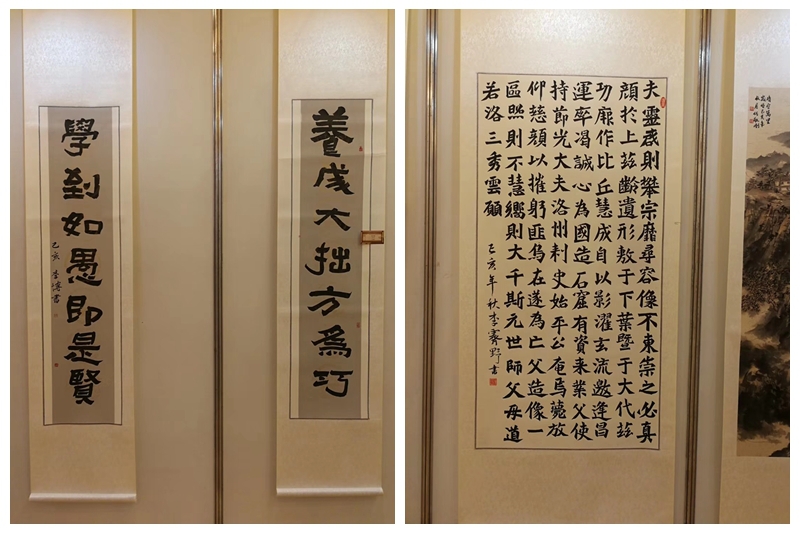 養成大拙方為巧
學到如愚即是賢
己亥 李博書
夫靈則攀宗靡尋容像不東崇之必真
顏於上茲齡遺形敷于下葉暨于大代茲
功厥作比丘慧成自以影濯玄流邀逢昌
運率渴誠心為國造石窟有資來業父使
持節光大夫洛州刺史始平公奄焉薨放
仰慈顏以摧躬匪烏在遂為亡父造像一
區照則不慧嚮則大千斯元世師父母道
若洛三秀雲願
己亥年秋李霽野書